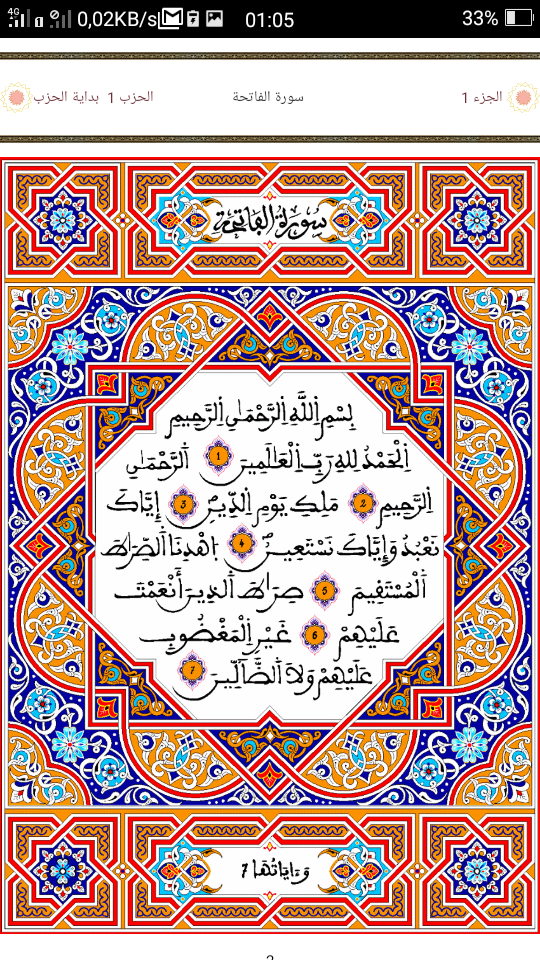 4G 0,02KB/s 01:05 33%
الجزء 1 سورة الفاتحة الحزب 1 بداية الحزب
سُورَةُ الْفَاتِحَةِ
بِسْمِ اِ۬للَّهِ اِ۬لرَّحْمَٰنِ اِ۬لرَّحِيمِ
اِ۬لْحَمْدُ لِلهِ رَبِّ اِ۬لْعَٰلَمِينَ 1 اَ۬لرَّحْمَٰنِ
اِ۬لرَّحِيمِ 2 مَلِكِ يَوْمِ اِ۬لدِّينِ 3 إِيَّاكَ
نَعْبُدُ وَإِيَّاكَ نَسْتَعِينُ 4 اُ۪هْدِنَا اَ۬لصِّرَٰطَ
اَ۬لْمُسْتَقِيمَ 5 صِرَٰطَ اَ۬لذِينَ أَنْعَمْتَ
عَلَيْهِمْ 6 غَيْرِ اِ۬لْمَغْضُوبِ
عَلَيْهِمْ وَلَا اَ۬لضَّآلِّينَ 7
وَءَايَاتُهَا 7
2